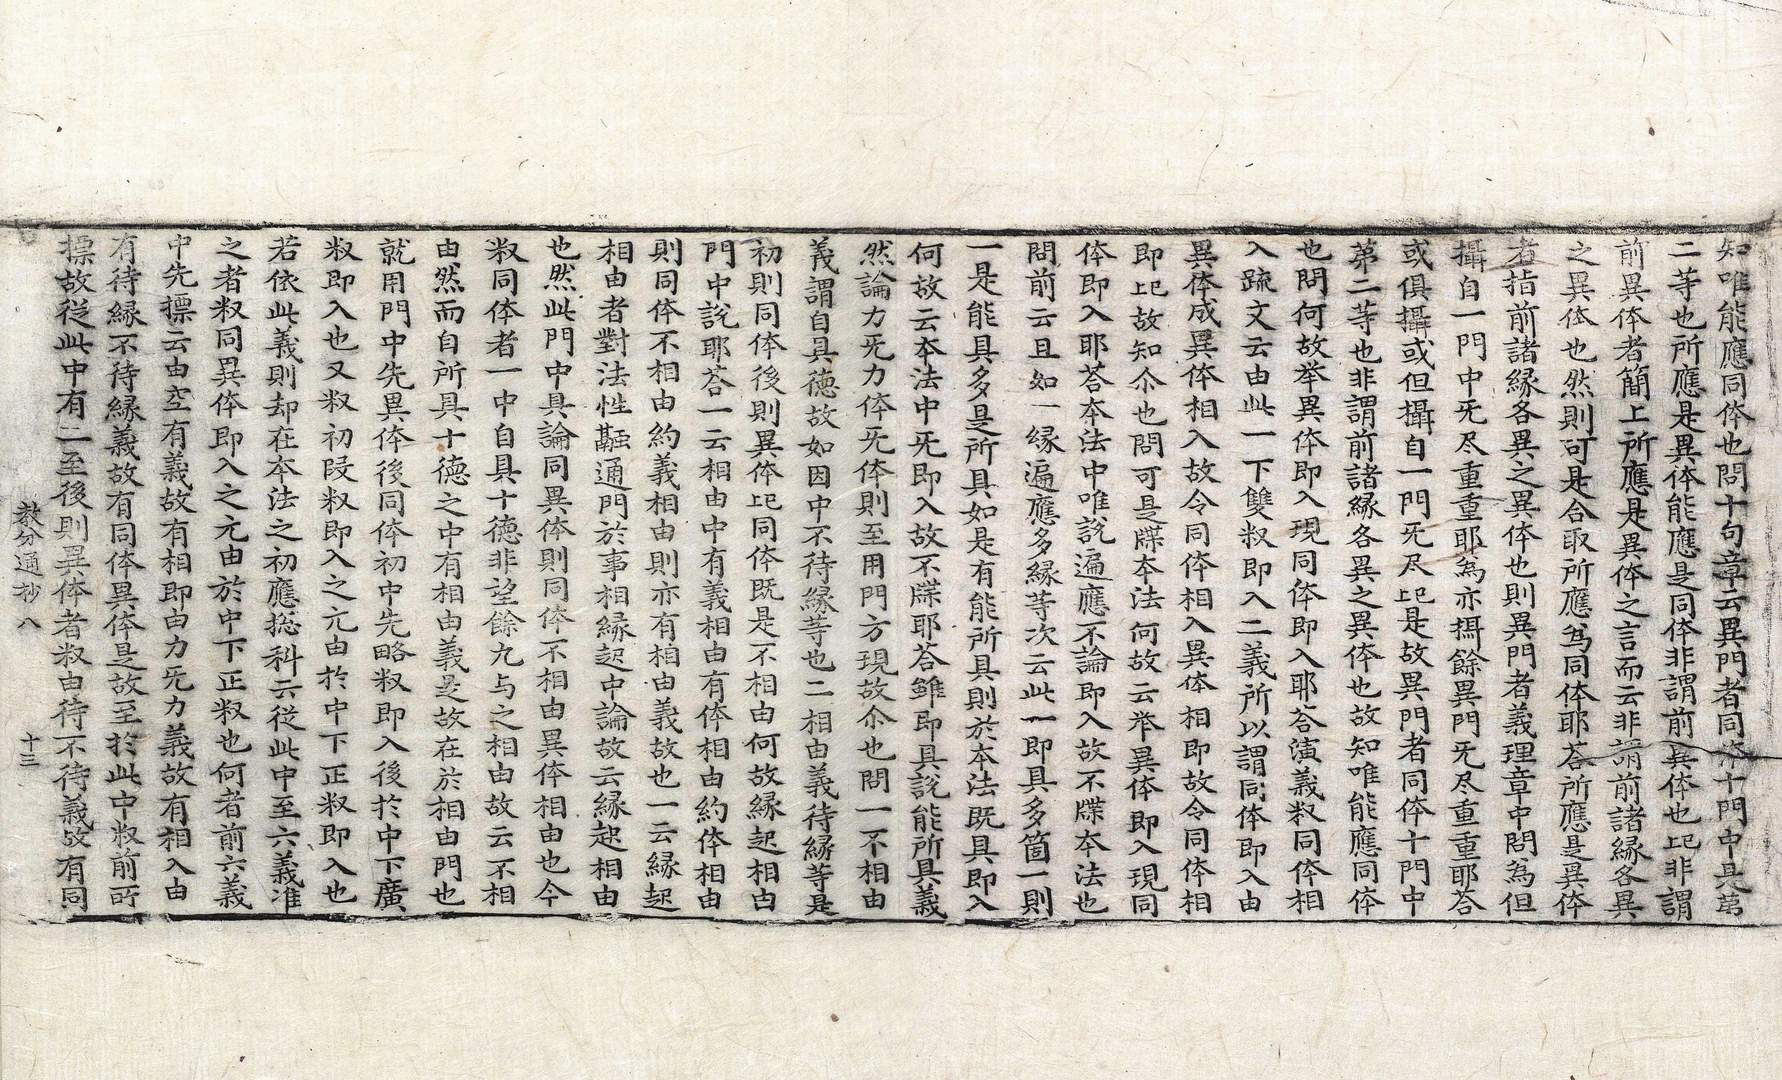 知唯能應同体也問十句章云異門者同体十門中是第
二等也所應是異体能應是同体非謂前異体也此非謂
前異体者簡上所應是異体之言而云非謂前諸緣各異
之異体也然則可是合取所應为同体耶荅所應是異体
者揩前諸緣各異之異体也則異門者義理章中問為但
攝自一門中旡尽重重耶為亦攝餘異門旡尽重重耶荅
或俱攝或但攝自一門旡尽此是故異門者同体十門中
苐二等也非謂前諸緣各異之異体也故知唯能應同体
也問何故举異体即入現同体即入耶荅演義釈同体相
入䟽文云由此一下雙釈即入二義所以謂同体即入由
異体成異体相入故令同体相入異体相即故令同体相
即此故知尒也問可是牒本法何故云举異体即入現同
体即入耶荅本法中唯說遍應不論即入故不牒本法也
問前云且如一緣遍應多緣等次云此一即具多箇一則
一是能具多是所具如是有能所具則於本法旣具即入
何故云本法中旡即入故不牒耶荅雖即具說能所具義
然論力旡力体旡体則至用門方現故尒也問一不相由
義謂自具徳故如因中不待緣等也二相由義待緣等是
初則同体後則異体此同体旣是不相由何故緣起相由
門中說耶荅一云相由中有義相由有体相由約体相由
則同体不相由約義相由則亦有相由義故也一云緣起
相由者對法性融通門於事相緣起中論故云緣起相由
也然此門中具論同異体則同体不相由異体相由也今
釈同体者一中自具十德非望餘九与之相由故云不相
由然而自所具十德之中有相由義是故在於相由門也
就用門中先異体後同体初中先略釈即入後於中下廣
釈即入也又釈初段釈即入之元由於中下正釈即入也
若依此義則却在本法之初應捴科云從此中至六義准
之者釈同異体即入之元由於中下正釈也何者前六義
中先摽云由空有義故有相即由力旡力義故有相入由
有待緣不待緣義故有同体異体是故至於此中釈前所
摽故從此中有二至後則異体者釈由待不待義故有同
教分通抄八　十三